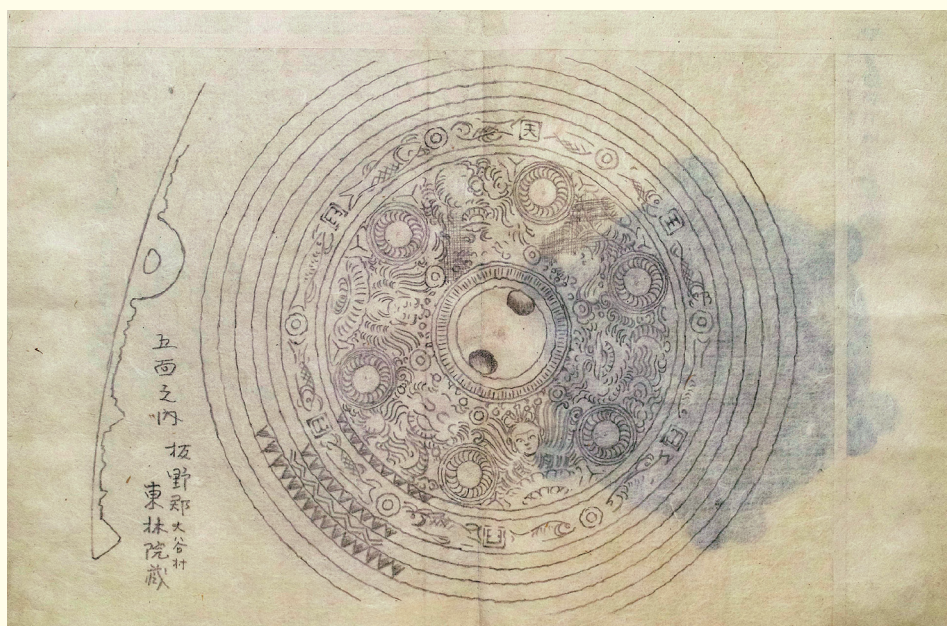 五面之内
板野郡大谷村
東林院蔵
天
王